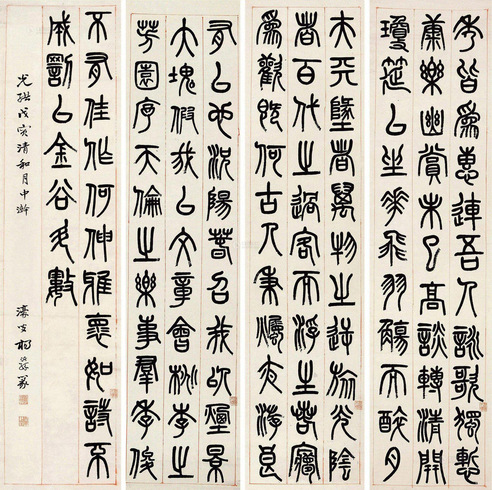 夫天墬者萬物之逆旅光陰
者百代之過客而浮生若夢
為歡幾何古人秉燭夜游良
有以也況陽春召我以煙景
大塊假我以文章會桃李之
芳園序天倫之樂事羣季俊
秀皆為惠連吾人詠歌獨慙
康樂幽賞未已高談轉清開
瓊筵以坐華飛羽觴而醉月
不有佳作何伸雅懷如詩不
成罰以金谷酒數
光緒戊寅清和月中澣
濠叟楊沂孫